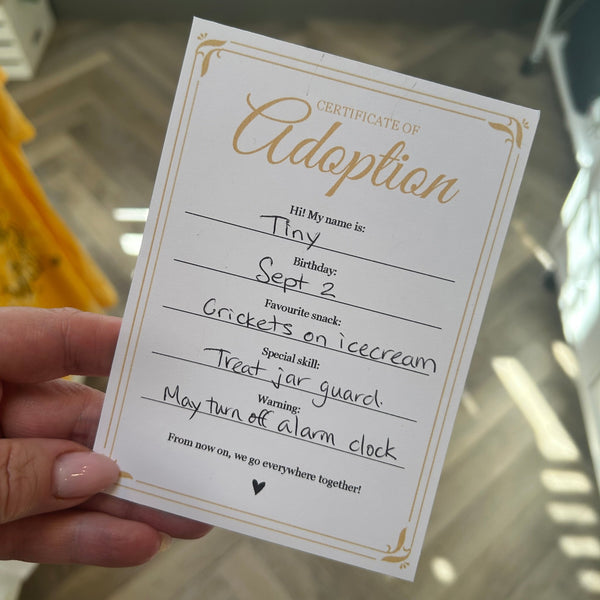 CERTIFICATE OF
Adoption
Hi! My name is:
Tiny
Birthday:
Sept 2
Favourite snack:
Crickets on icecream
Special skill:
Treat jar guard.
Warning:
May turn off alarm clock
From now on, we go everywhere together!